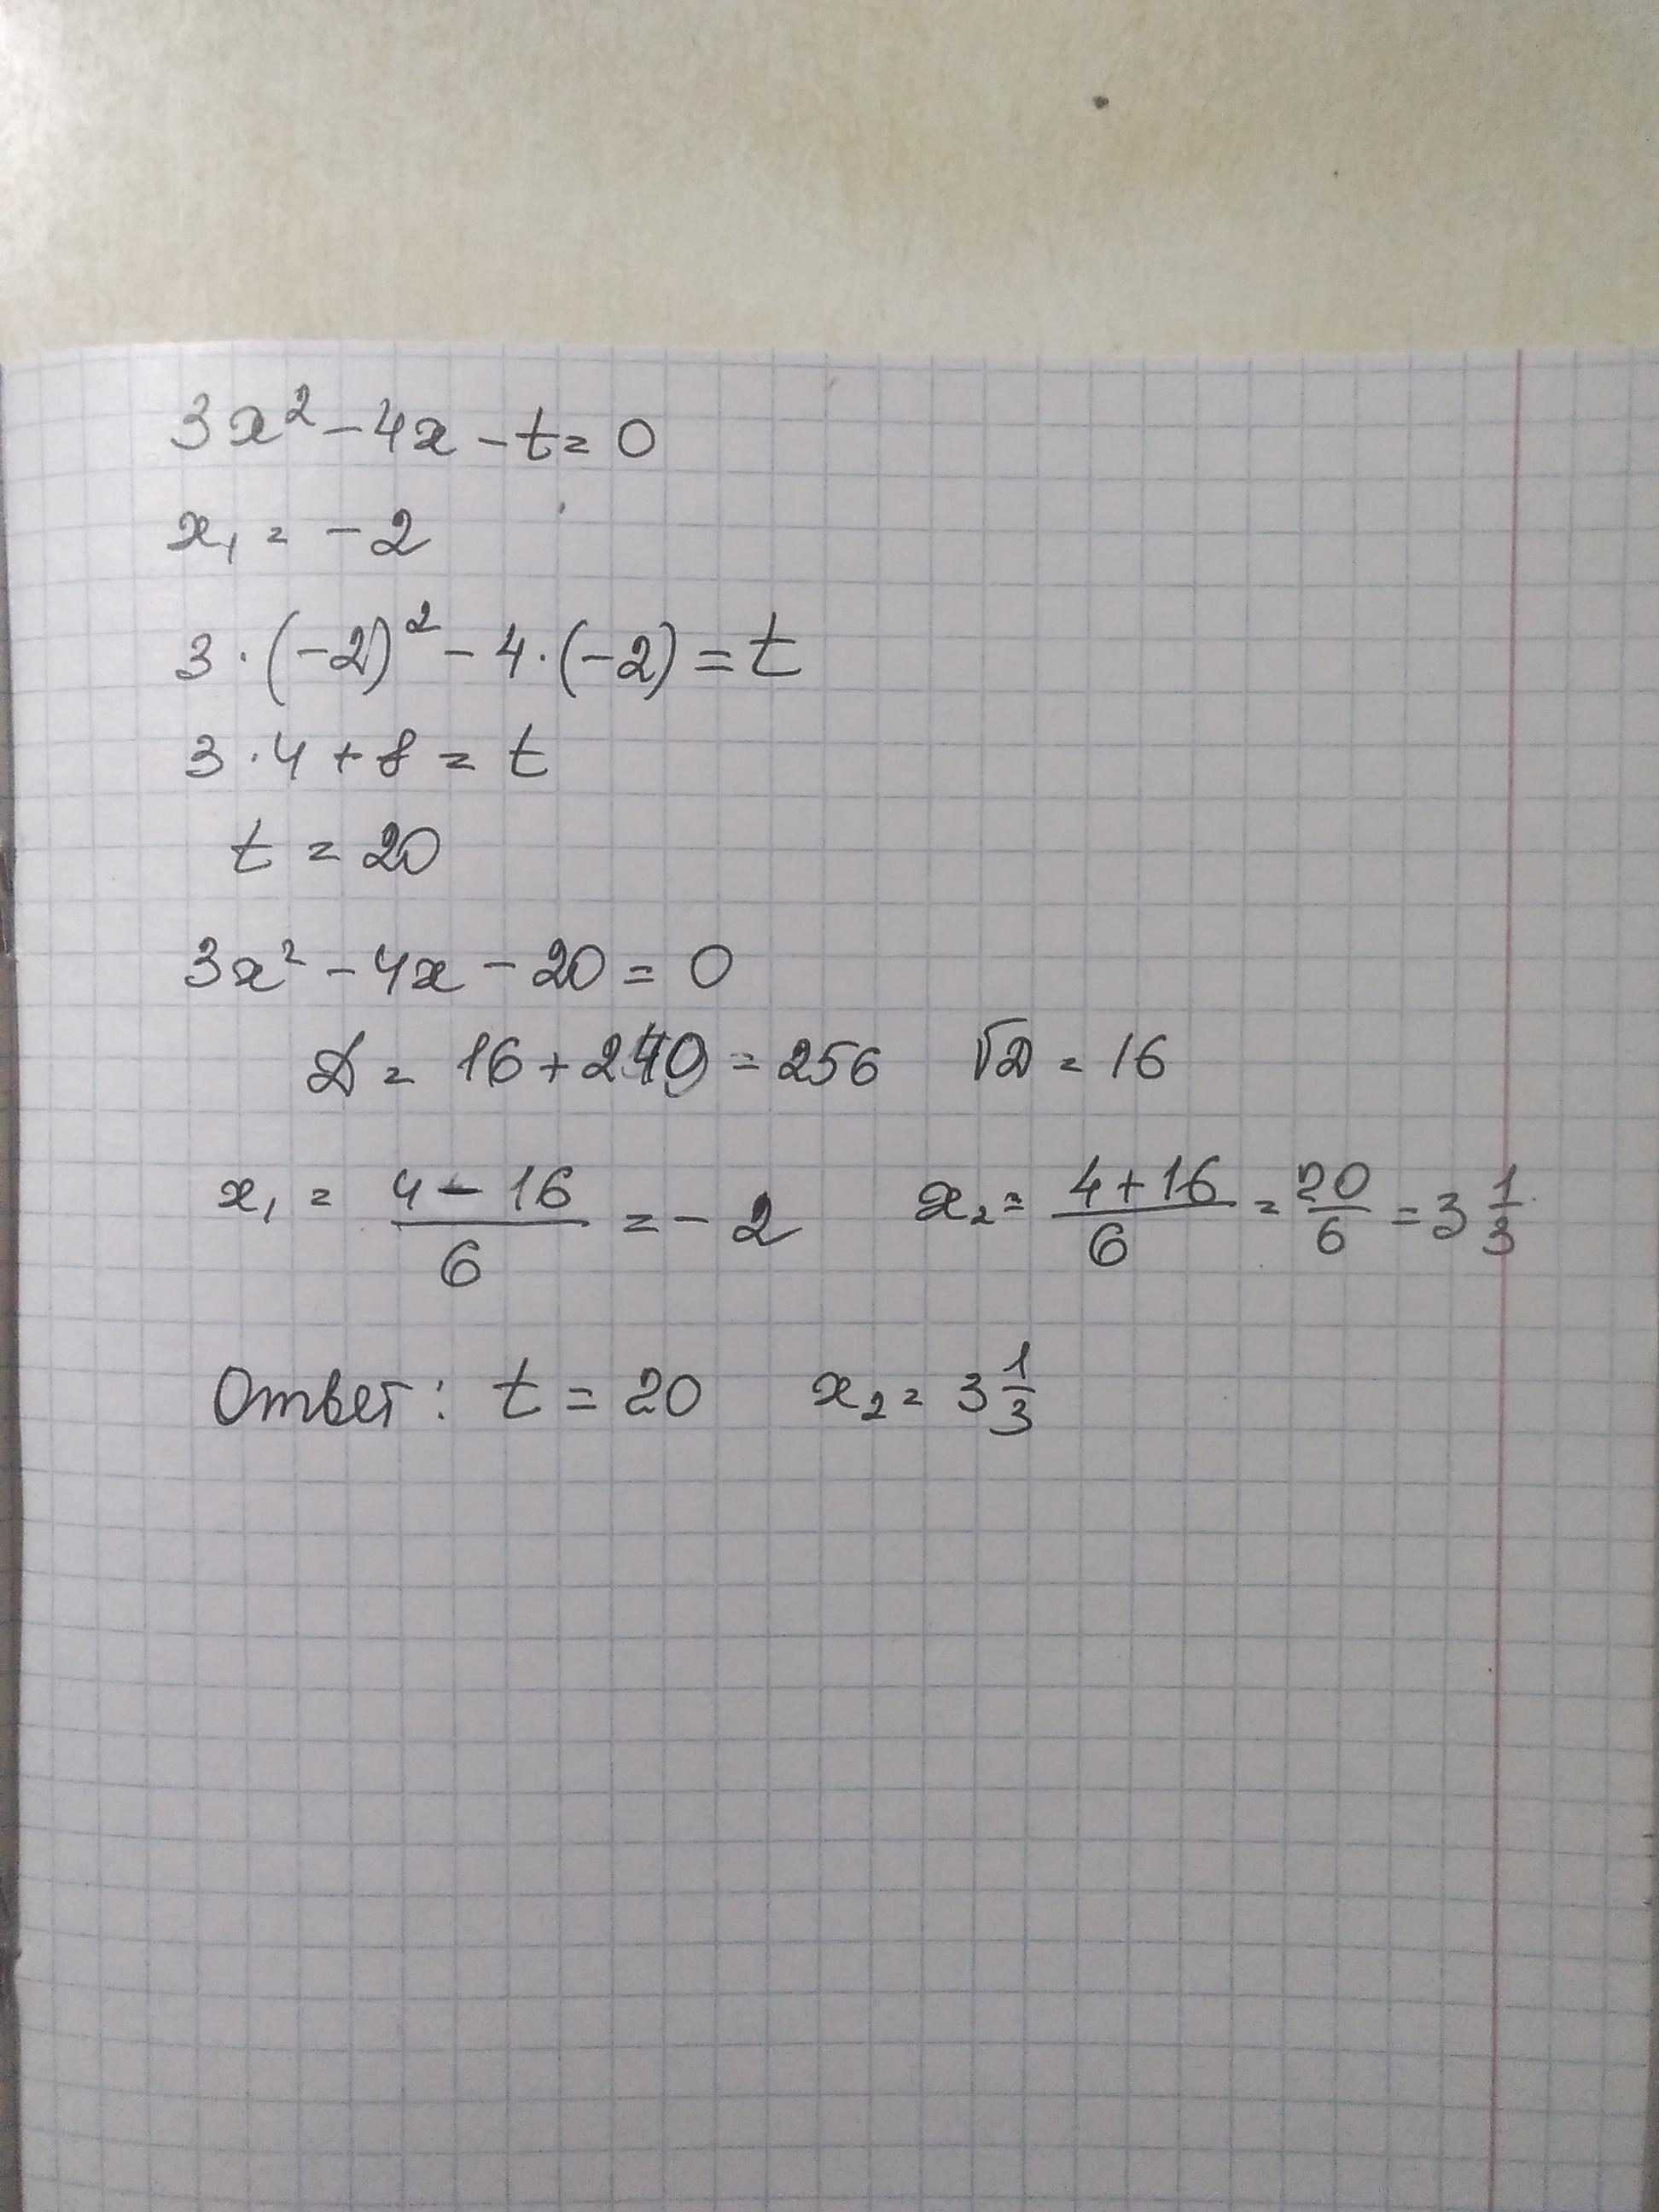 3x² - 4x - t = 0
x₁ = -2
3 · (-2)² - 4 · (-2) = t
3 · 4 + 8 = t
t = 20
3x² - 4x - 20 = 0
D = 16 + 240 = 256 √D = 16
x₁ = (4 - 16)/6 = -2 x₂ = (4 + 16)/6 = 20/6 = 3 1/3
Ответ: t = 20 x₂ = 3 1/3